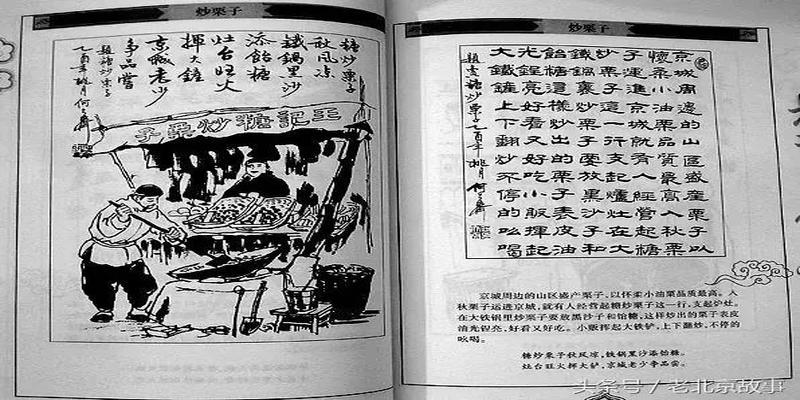 炒栗子
糖炒栗子
秋风凉
鐵鍋里沙
添飴糖
灶台旺火
揮大鏟
京城老少
争品嘗
題糖炒栗子
乙酉年桃月何大齊
王記糖炒栗子
炒栗子
京城周邊的山區盛産栗子以
懷柔小油栗品質最高入秋栗
子運進京城就有人經營起糖
炒栗子這一行支起爐灶在大
鐵鍋裏炒栗子要放黑沙子和
飴糖這樣炒出的栗子表皮油
光鋥亮好看又好吃小販揮起
大鐵鏟上下翻炒不停的吆喝
糖炒栗子乙酉年桃月何大齊
京城周边的山区盛产栗子，以怀柔小油栗品质最高。入
秋栗子运进京城，就有人经营起糖炒栗子这一行，支起炉灶。
在大铁锅里炒栗子要放黑沙子和饴糖，这样炒出的栗子表皮
油光锃亮，好看又好吃。小贩挥起大铁铲，上下翻炒，不停的
吆喝。
糖炒栗子秋风凉，铁锅里沙添饴糖。
灶台旺火挥大铲，京城老少争品尝。
头条号 / 老北京故事